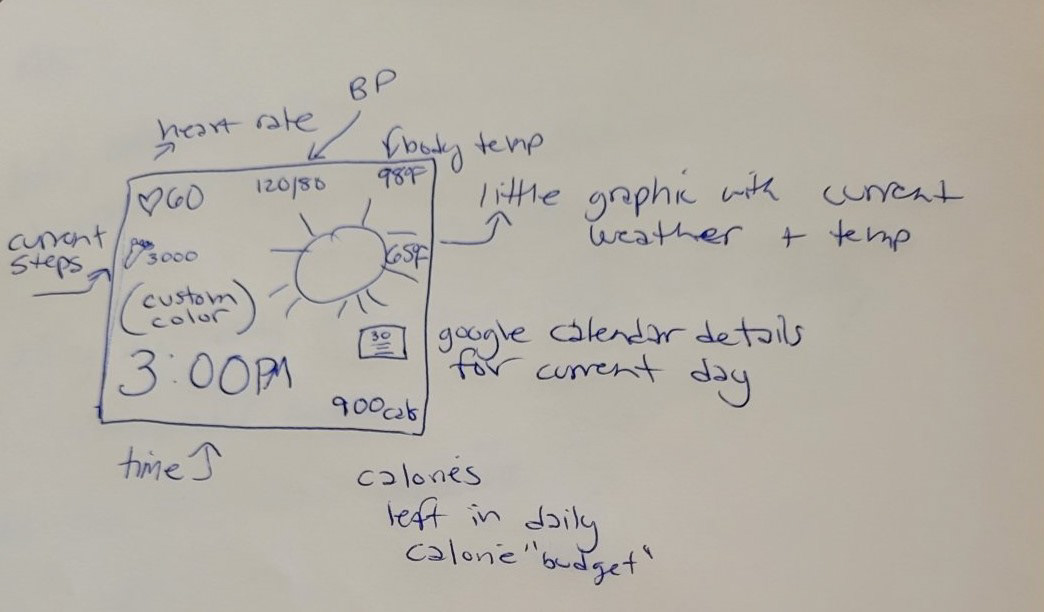 BP
heart rate
body temp
♡60
120/80
98°F
little graphic with current
weather + temp
current
steps
3000
65°F
(custom
color)
30
google calendar details
for current day
3:00PM
900cals
time
calories
left in daily
calorie "budget"